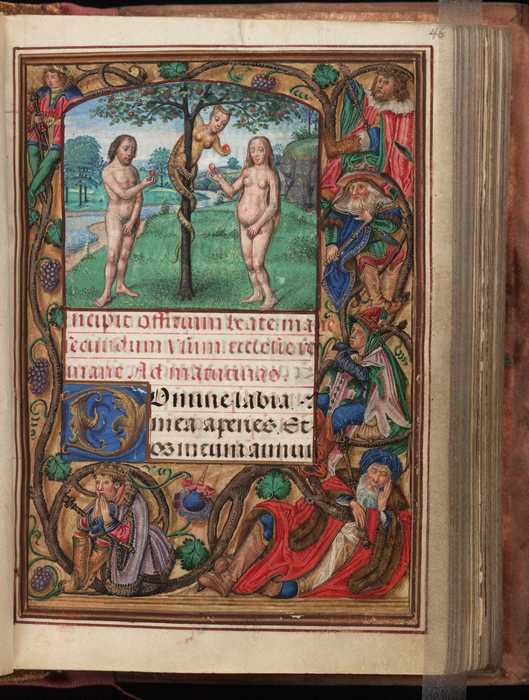 46
incipit officium beate marie
secundum usum ecclesie ro
mane. Ad matutinas.
Domine labia
mea aperies. Et
os meum annun